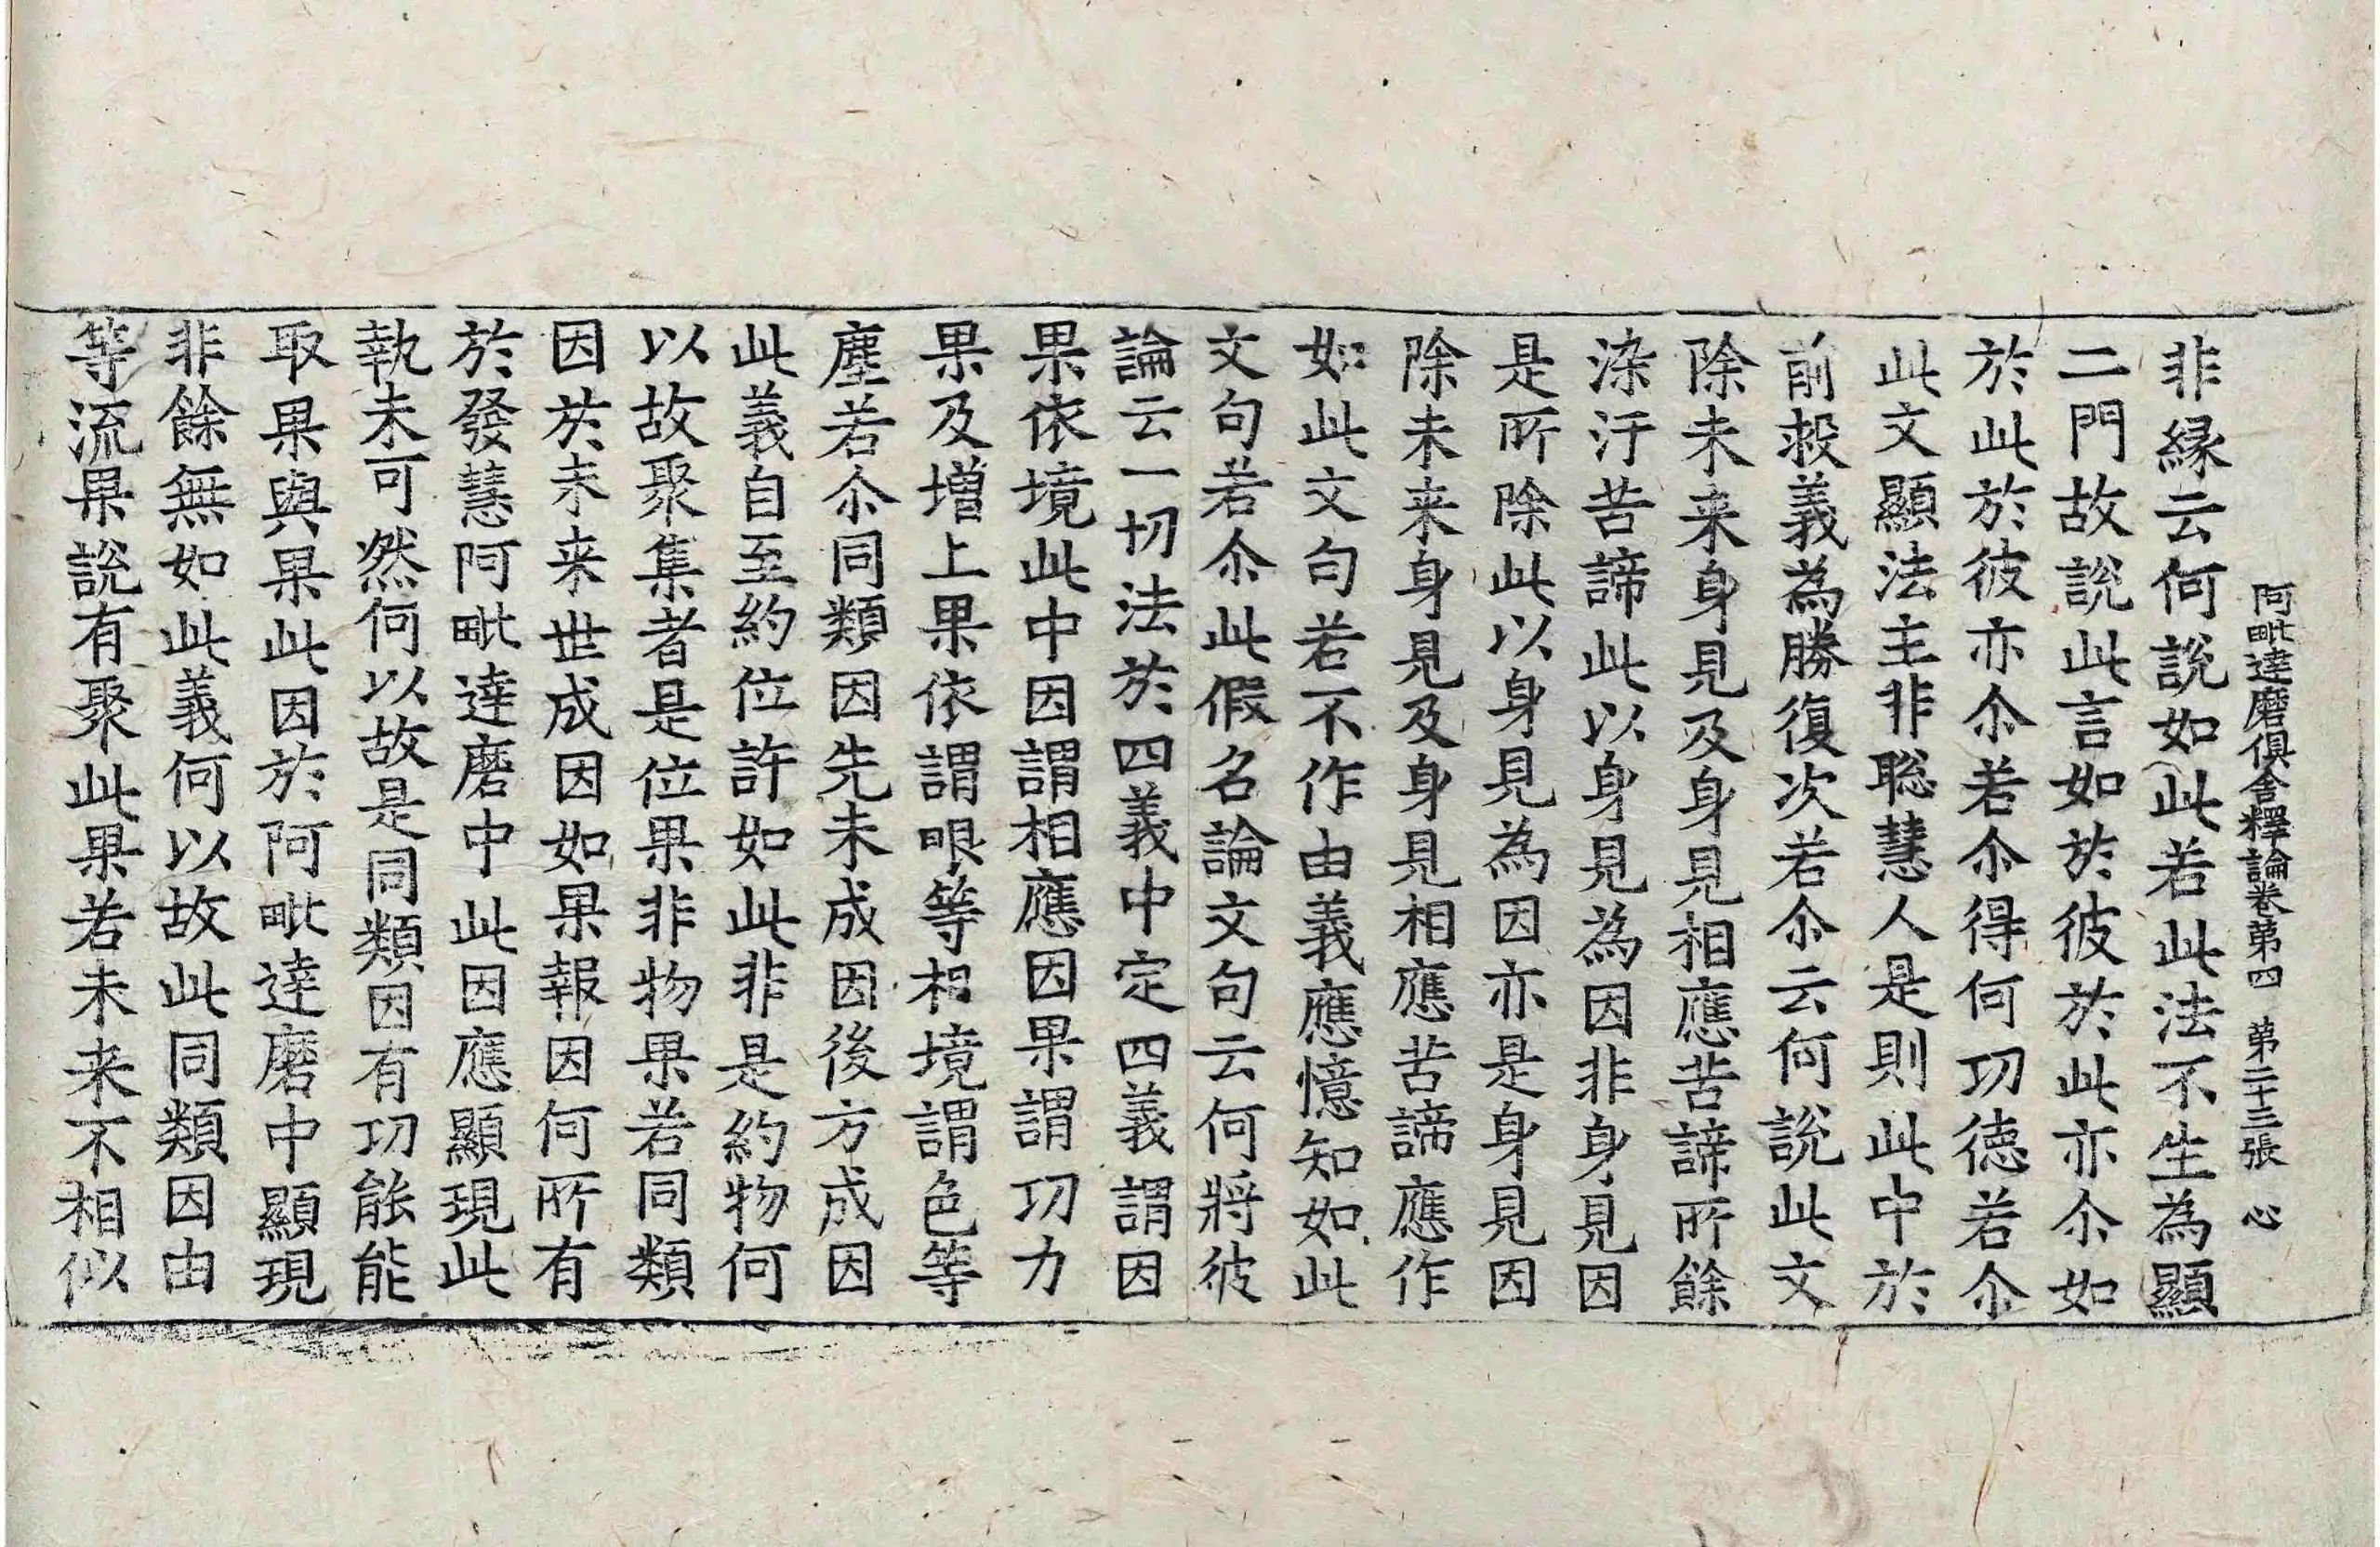 阿毗達磨俱舍釋論卷第四　第二十三張　心
非縁云何說如此若此法不生為顯
二門故說此言如於彼於此亦尒如
於此於彼亦尒若尒得何功德若尒
此文顯法主非聡慧人是則此中於
前救義為勝復次若尒云何說此文
除未来身見及身見相應苦諦所餘
染汙苦諦此以身見為因非身見因
是所除此以身見為因亦是身見因
除未来身見及身見相應苦諦應作
如此文句若不作由義應憶知如此
文句若尒此假名論文句云何將彼
論云一切法於四義中定四義謂因
果依境此中因謂相應因果謂功力
果及増上果依謂眼等境謂色等
塵若尒同類因先未成因後方成因
此義自至約位許如此非是約物何
以故聚集者是位果非物果若同類
因於未来世成因如果報因何所有
於發慧阿毗達磨中此因應顯現此
執未可然何以故是同類因有功能能
取果與果此因於阿毗達磨中顯現
非餘無如此義何以故此同類因由
等流果說有聚此果若未来不相似